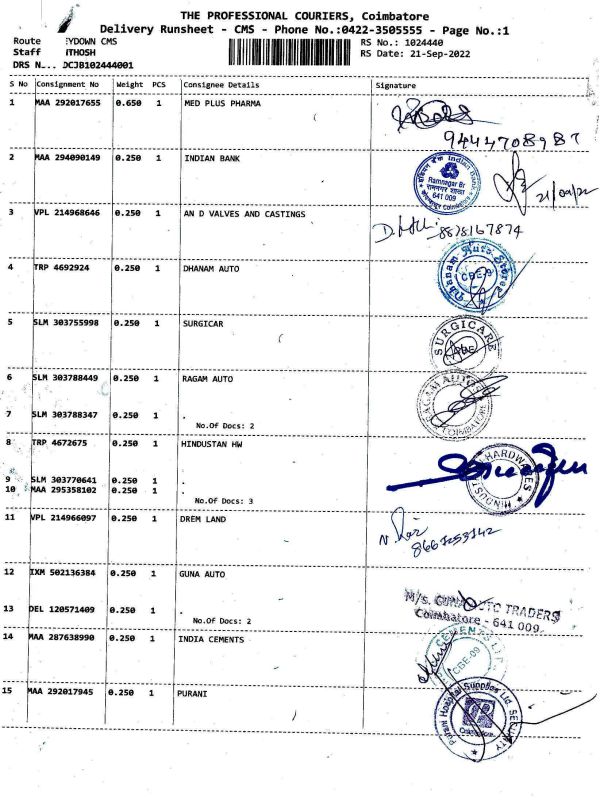 THE PROFESSIONAL COURIERS, Coimbatore
Delivery Runsheet - CMS - Phone No.:0422-3505555 - Page No.:1
Route EYDOWN CMS
RS No.: 1024440
Staff ITHOSH
RS Date: 21-Sep-2022
DRS N... DCJB102444001
S No Consignment No Weight PCS Consignee Details Signature
1 MAA 292017655 0.650 1 MED PLUS PHARMA
9444708987
2 MAA 294090149 0.250 1 INDIAN BANK
Indian Bank
Ramnagar Br
रामनगर शाखा
641 009
Coimbatore
21/09/22
3 VPL 214968646 0.250 1 AN D VALVES AND CASTINGS
8878167874
4 TRP 4692924 0.250 1 DHANAM AUTO
Dhanam Auto Stores
CBE-9
5 SLM 303755998 0.250 1 SURGICAR
SURGICARE
6 SLM 303788449 0.250 1 RAGAM AUTO
RAGAM AUTO
COIMBATORE
7 SLM 303788347 0.250 1 .
No.Of Docs: 2
8 TRP 4672675 0.250 1 HINDUSTAN HW
HINDUSTAN HARDWARES
9 SLM 303770641 0.250 1 .
10 MAA 295358102 0.250 1 .
No.Of Docs: 3
11 VPL 214966097 0.250 1 DREM LAND
8667253142
12 IXM 502136384 0.250 1 GUNA AUTO
M/s. GUNA AUTO TRADERS
Coimbatore - 641 009.
13 DEL 120571409 0.250 1 .
No.Of Docs: 2
14 MAA 287638990 0.250 1 INDIA CEMENTS
CEMENTS LTD
CBE-09
15 MAA 292017945 0.250 1 PURANI
Purani Hospital Supplies Ltd. SECURITY
Coimbatore